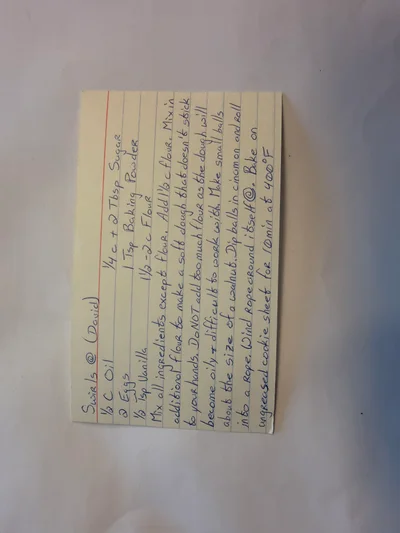 Swirls @ (David)
1/2 C Oil 1/4 c + 2 Tbsp Sugar
2 Eggs 1 Tsp Baking Powder
1/2 Tsp Vanilla 1 1/2 - 2 C Flour
Mix all ingredients except flour. Add 1 1/2 c flour. Mix in
additional flour to make a soft dough that doesn't stick
to your hands. Do NOT add too much flour as the dough will
become oily + difficult to work with. Make small balls
about the size of a walnut. Dip balls in cinamon and roll
into a rope. Wind rope around itself @. Bake on
ungreased cookie sheet for 10 min at 400°F